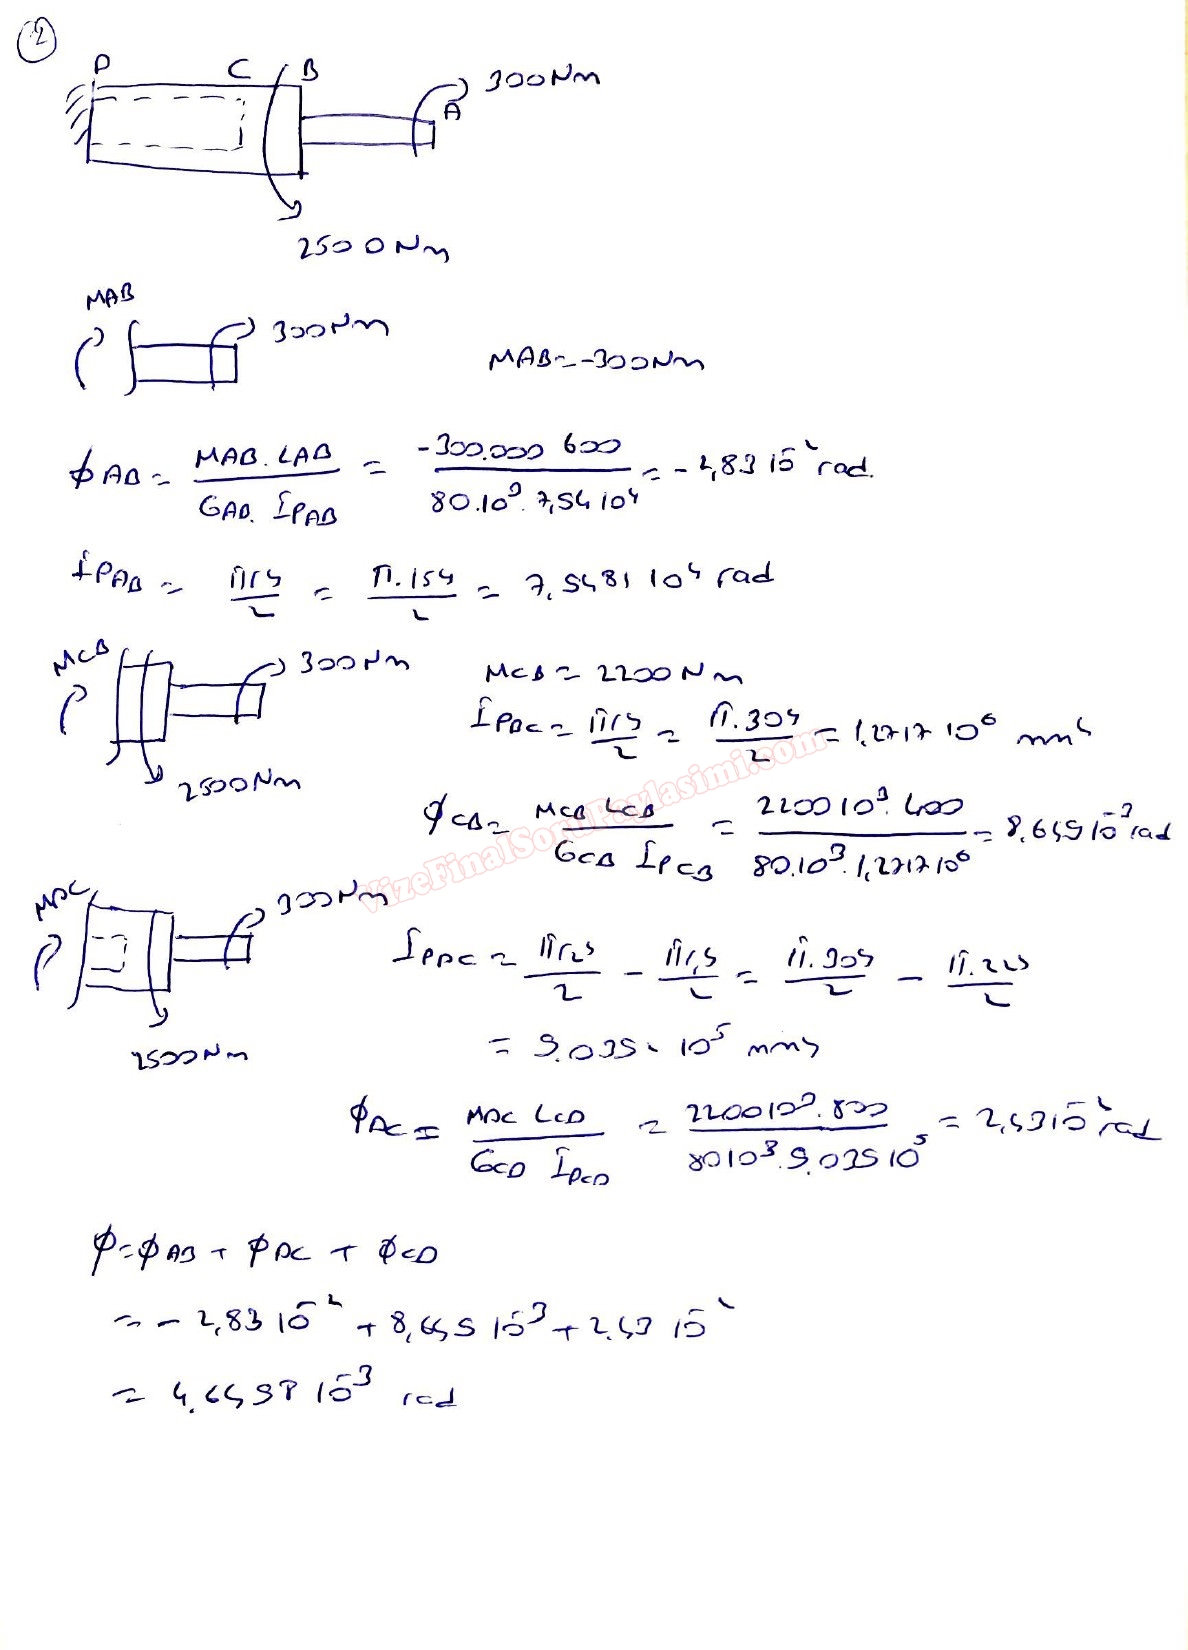 2
D C B 300Nm
A
2500Nm
MAB
300Nm
MAB=-300Nm
ϕAB = MAB.LAB / GAB.İPAB = -300.000 600 / 80.10³.7,54 10⁴ = -2,83 10⁻² rad.
İPAB = πr⁴/2 = π.15⁴/2 = 7,5481 10⁴ rad
MCB
300Nm
MCB = 2200Nm
2500Nm
İPBC = πr⁴/2 = π.30⁴/2 = 1,2717 10⁶ mm⁴
ϕCB = MCB LCB / GCB İPCB = 2200 10³.400 / 80.10³.1,2717 10⁶ = 8,649 10⁻³ rad
MDC
300Nm
2500Nm
İPDC = πr₂⁴/2 - πr₁⁴/2 = π.30⁴/2 - π.22⁴/2
= 9.039 10⁵ mm⁴
ϕDC = MDC LCD / GCD İPCD = 2200 10³.800 / 80 10³.9.039 10⁵ = 2,43 10⁻² rad
ϕ=ϕAB + ϕBC + ϕCD
= -2,83 10⁻² + 8,649 10⁻³ + 2.43 10⁻²
= 4.6498 10⁻³ rad
VizeFinalSoruPaylasimi.com